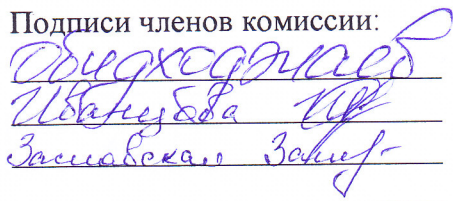 Подписи членов комиссии:
Обидходжаев
Иванцова
Засловская